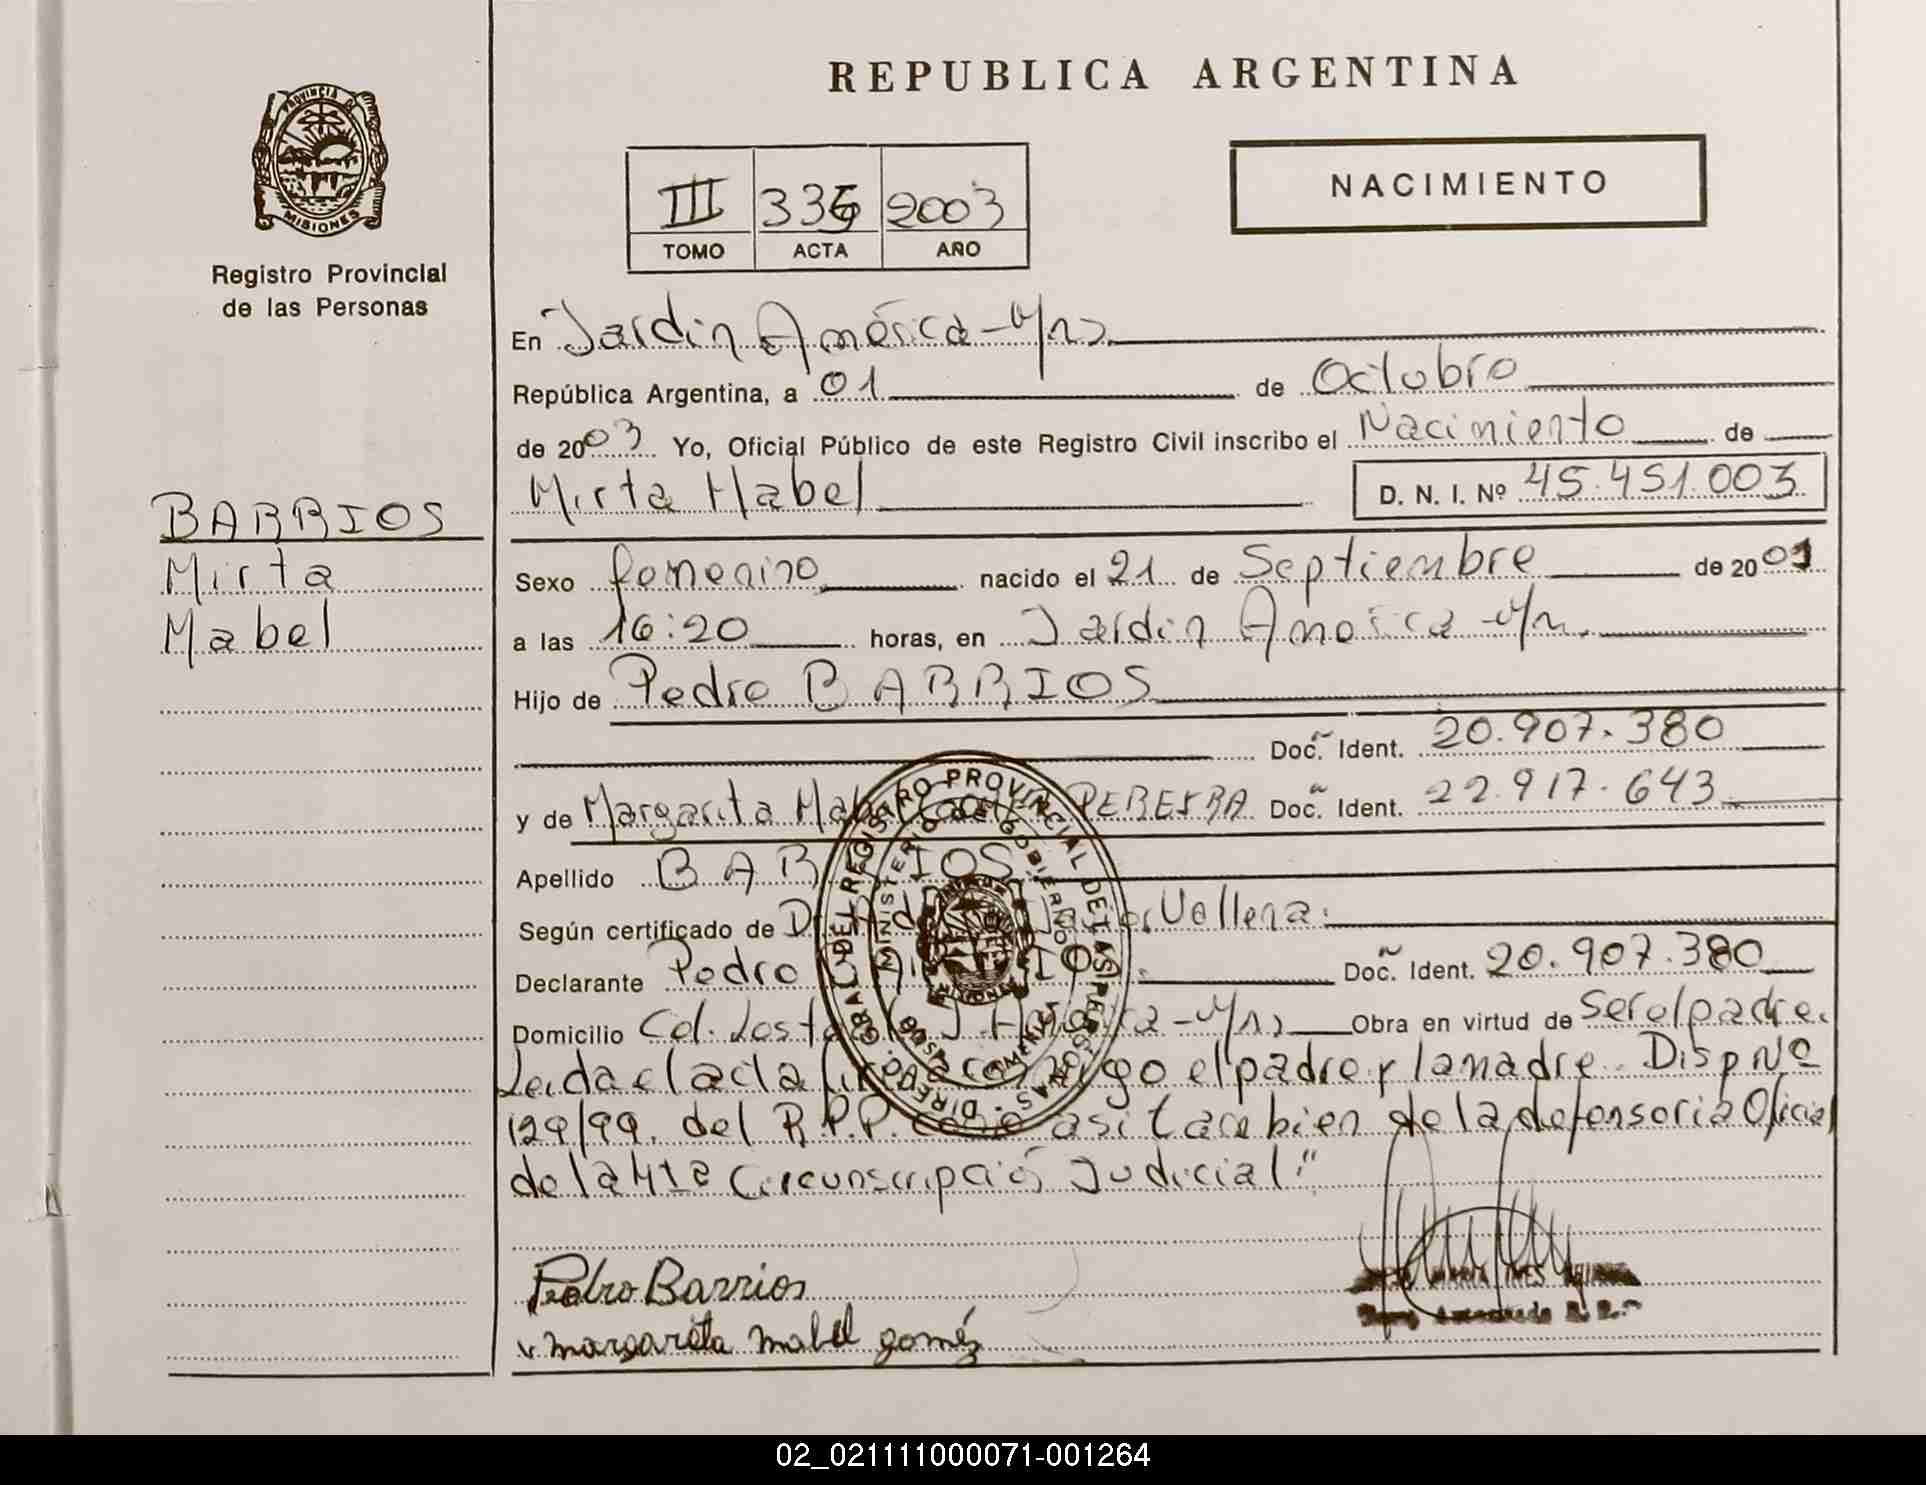 PROVINCIA DE
MISIONES
Registro Provincial
de las Personas
BARRIOS
Mirta
Mabel
REPUBLICA ARGENTINA
NACIMIENTO
III 2003
TOMO ACTA AÑO
En Jardin América - Mns
República Argentina, a 01 de Octubre
de 2003 Yo, Oficial Público de este Registro Civil inscribo el Nacimiento de
Mirta Mabel D. N. I. Nº 45.451.003
Sexo femenino nacido el 21 de Septiembre de 20
a las 16:20 horas, en Jardin America - Mn.
Hijo de Pedro BARRIOS
Doc. Ident. 20.907.380
y de Margarita PEREIRA Doc. Ident. 22.917.643
Apellido BARRIOS
Según certificado de Vallena.
Declarante Pedro Doc. Ident. 20.907.380
Domicilio Col. - Mns Obra en virtud de ser el padre.
Leida el acta el padre y la madre. Disp Nº
129/99. del R.P.P. como asi tambien de la defensoria Oficial
de la 4ta Circunscripción Judicial."
DIRECC. GRAL. DEL REGISTRO PROVINCIAL DE LAS PERSONAS
MINISTERIO DE GOBIERNO
MISIONES
Pedro Barrios
margarita mabel goméz
MARIA INES
02_021111000071-001264